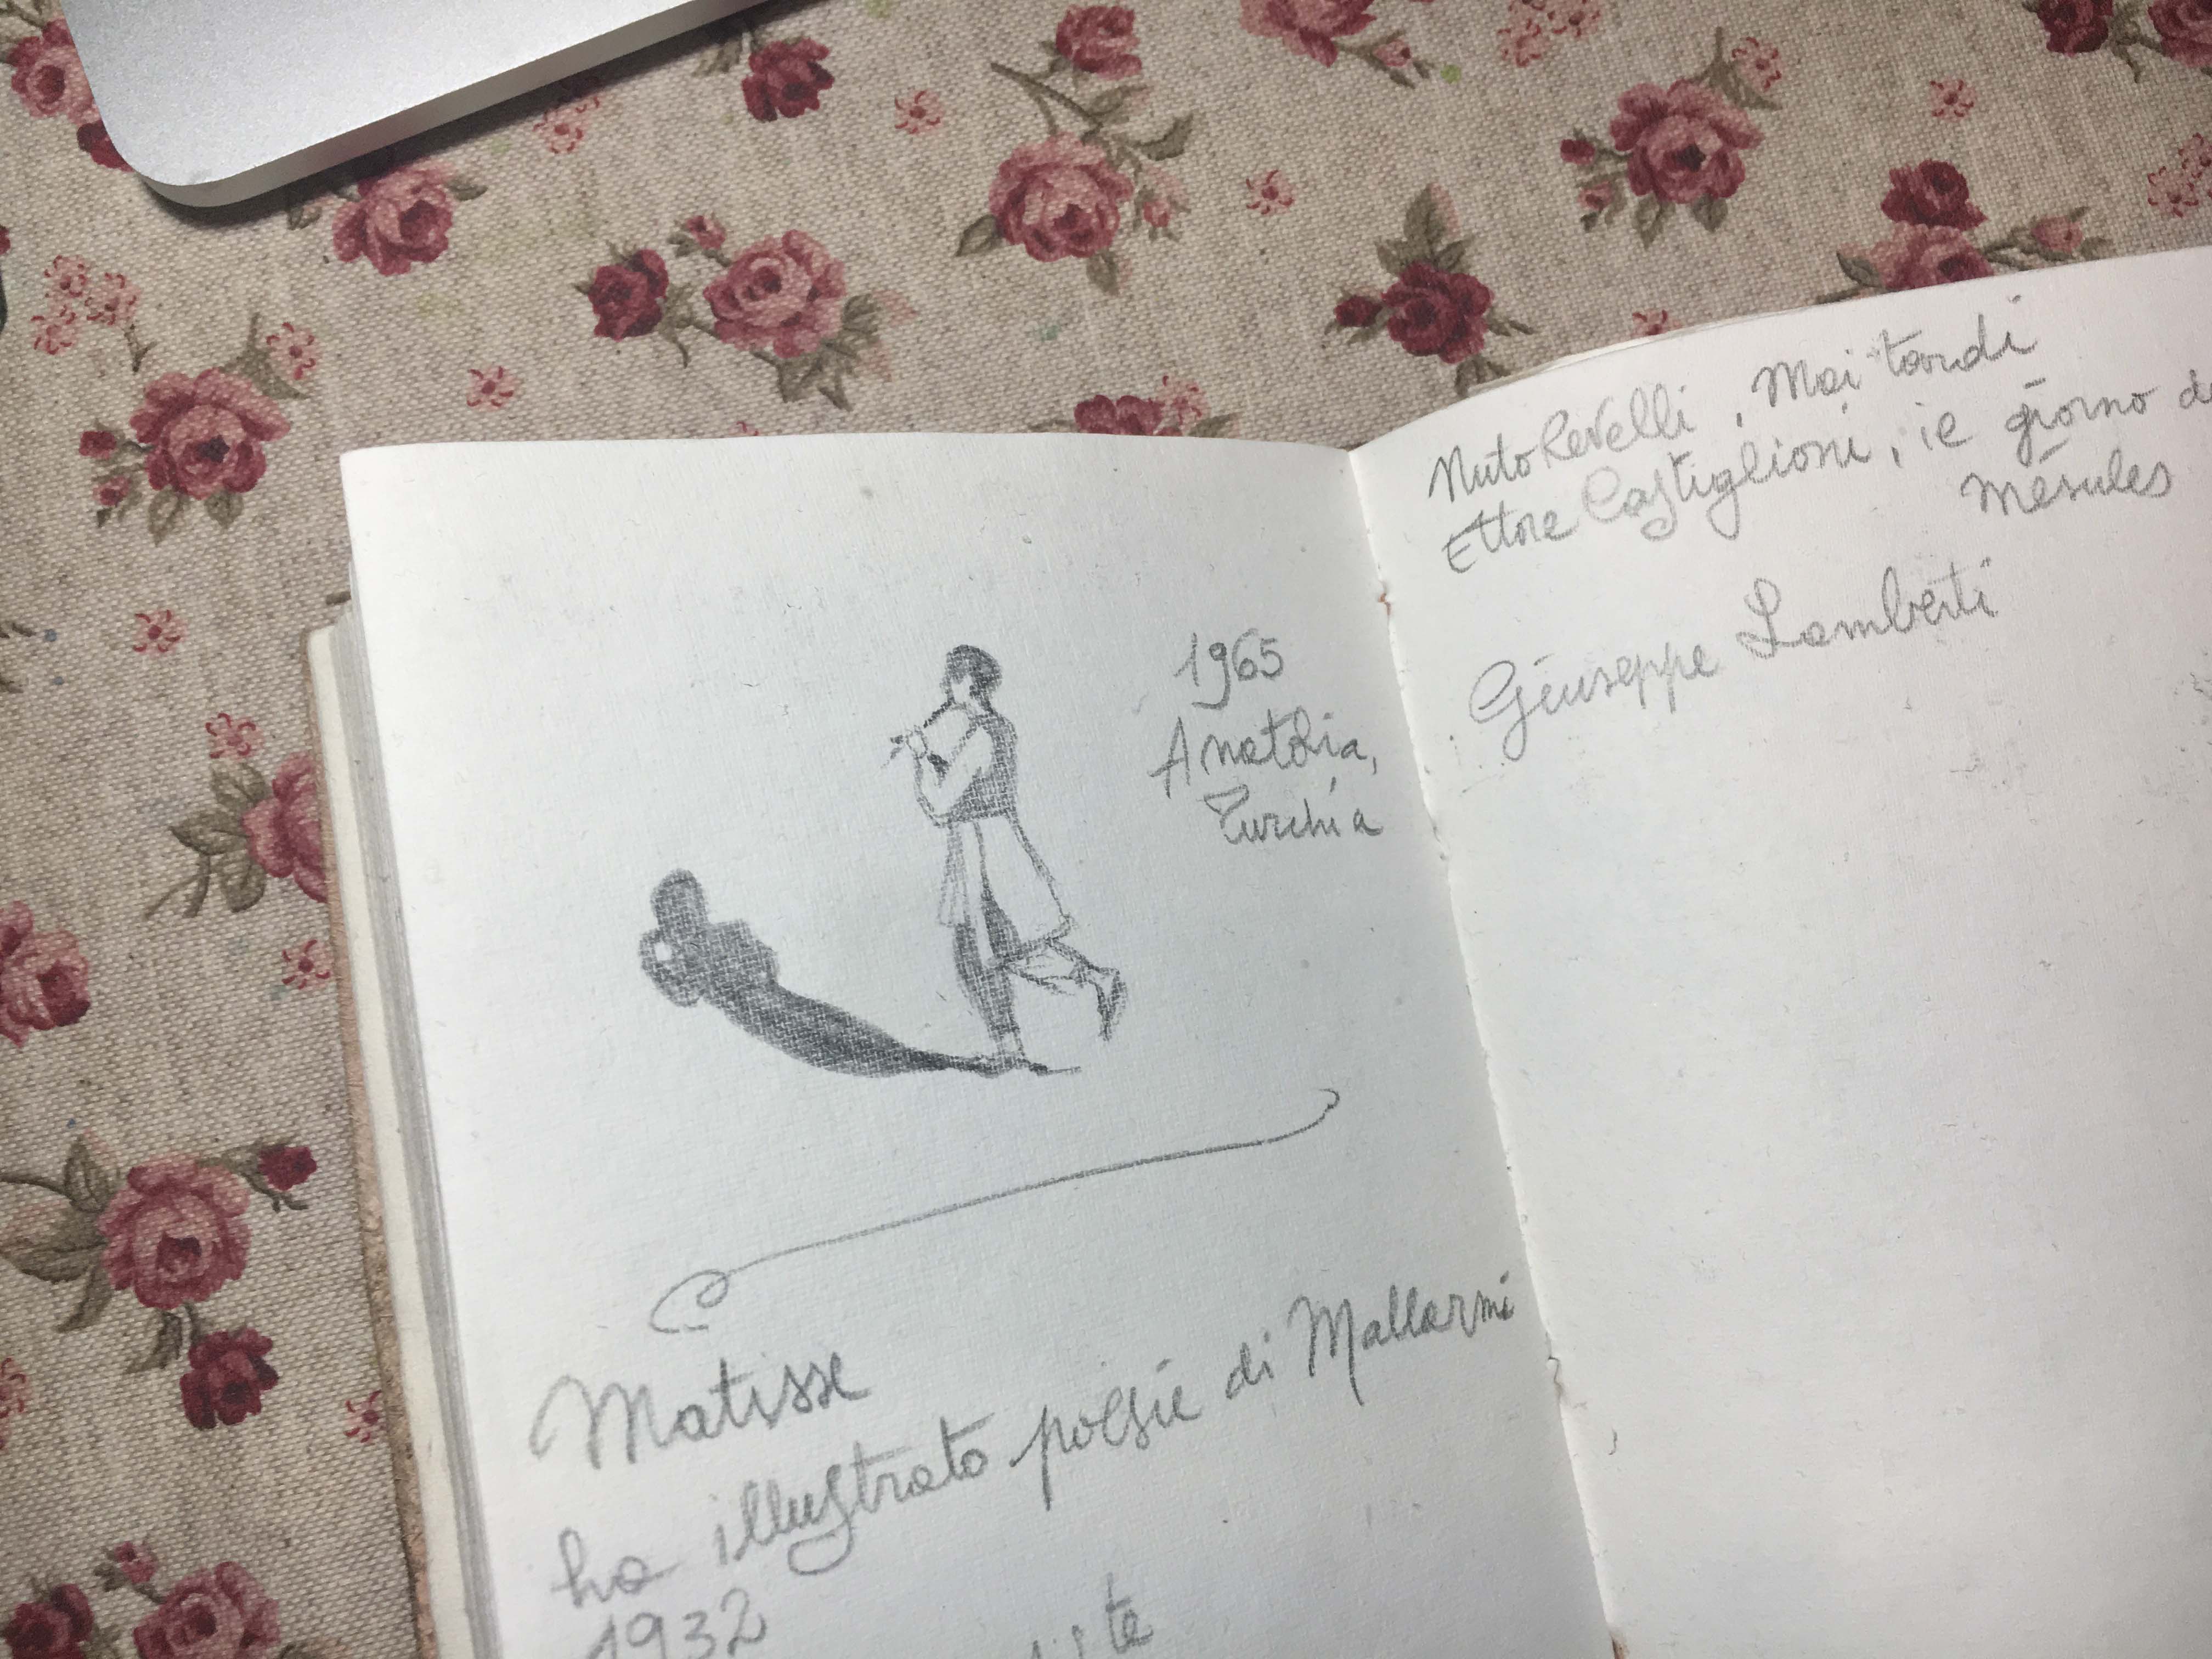 1965
Anatolia,
Turchia
Matisse
ha illustrato poesie di Mallarmi
1932
Nuto Revelli, Mai tardi
Ettore Castiglioni, il giorno de
Mésules
Giuseppe Lamberti